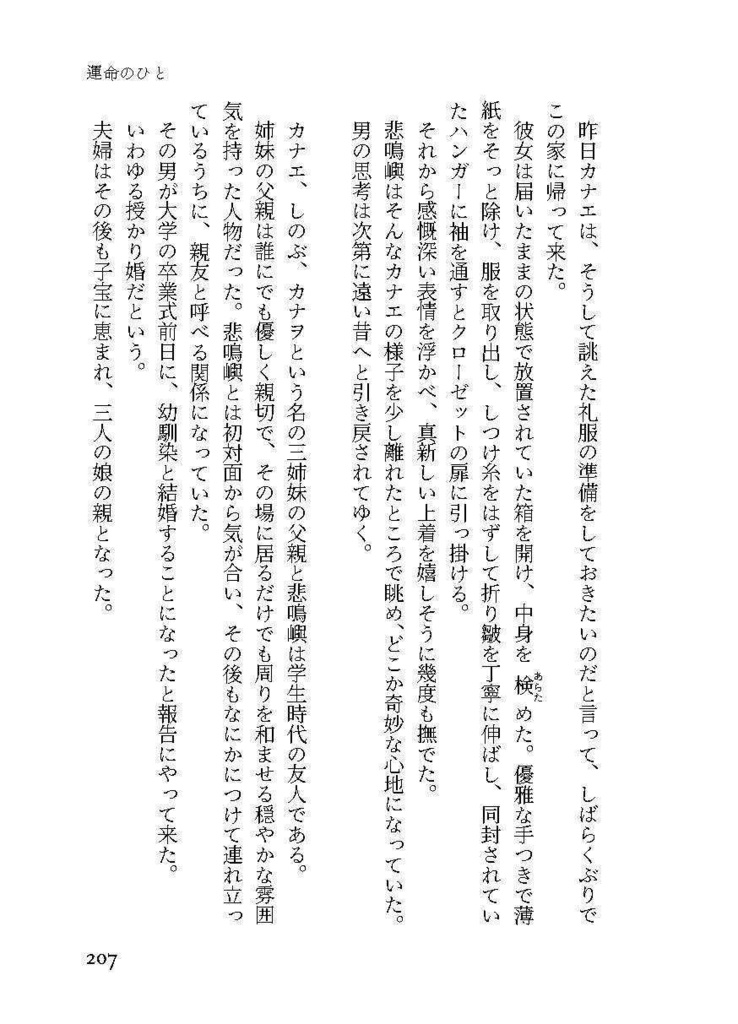 運命のひと
昨日カナエは、そうして誂えた礼服の準備をしておきたいのだと言って、しばらくぶりで
この家に帰って来た。
彼女は届いたままの状態で放置されていた箱を開け、中身を検めた。優雅な手つきで薄
あらた
紙をそっと除け、服を取り出し、しつけ糸をはずして折り皺を丁寧に伸ばし、同封されてい
たハンガーに袖を通すとクローゼットの扉に引っ掛ける。
それから感慨深い表情を浮かべ、真新しい上着を嬉しそうに幾度も撫でた。
悲鳴嶼はそんなカナエの様子を少し離れたところで眺め、どこか奇妙な心地になっていた。
男の思考は次第に遠い昔へと引き戻されてゆく。
カナエ、しのぶ、カナヲという名の三姉妹の父親と悲鳴嶼は学生時代の友人である。
姉妹の父親は誰にでも優しく親切で、その場に居るだけでも周りを和ませる穏やかな雰囲
気を持った人物だった。悲鳴嶼とは初対面から気が合い、その後もなにかにつけて連れ立っ
ているうちに、親友と呼べる関係になっていた。
その男が大学の卒業式前日に、幼馴染と結婚することになったと報告にやって来た。
いわゆる授かり婚だという。
夫婦はその後も子宝に恵まれ、三人の娘の親となった。
207